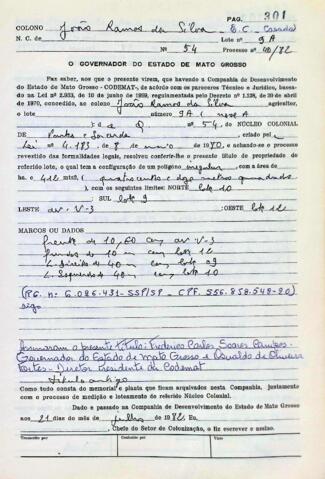 PAG. 301
COLONO João Ramos da Silva - E.C. Casado
N. C. de Lote nº 9A
Nº 54 Processo nº 40/82
O GOVERNADOR DO ESTADO DE MATO GROSSO
Faz saber, aos que o presente virem, que havendo a Companhia de Desenvolvimento
do Estado de Mato Grosso - CODEMAT-, de acôrdo com os pareceres Técnico e Jurídico, basea-
da na Lei nº 2.933, de 10 de junho de 1969, regulamentada pelo Decreto nº 1.138, de 30 de abril
de 1970, concedido, ao colono João Ramos da Silva agricultor,
o lote número 9A (nove A
e Q nº 54, do NÚCLEO COLONIAL
DE Pontes e Lacerda criado pel a
Lei nº 4.183, 8 de maio de 1980, e achando-se o processo
revestido das formalidades legais, resolveu conferir-lhe o presente título de propriedade do
referido lote, o qual tem a configuração de um polígono irregular, com a área de
ha. e 412 mts2 (quatrocentos e doze metros quadrados
), com os seguintes limites: NORTE lote 10
; SUL lote 9
LESTE av. V-3 ; OESTE lote 12
MARCOS OU DADOS
frente de 10,60 com av V-3
fundos de 10 m com lote 12
L. Direito de 40 m com lote 09
L. Esquerdo de 40 m com lote 10
(RG. nº 6.086.431-SSP/SP - CPF. 556.858.548-20)
Assinaram o presente título: Frederico Carlos Soares Campos -
Governador do Estado de Mato Grosso e Osvaldo de Oliveira
Fortes - Diretor Presidente da Codemat
título antigo
Como tudo consta do memorial e planta que ficam arquivados nesta Companhia, juntamente
com o processo de medição e loteamento do referido Núcleo Colonial.
Dado e passado na Companhia de Desenvolvimento do Estado de Mato Grosso
aos 21 dias do mês de julho de 1982. Eu,
, Chefe do Setor de Colonização, o fiz escrever e assino.
Transcrito por
Conferido por
Visto